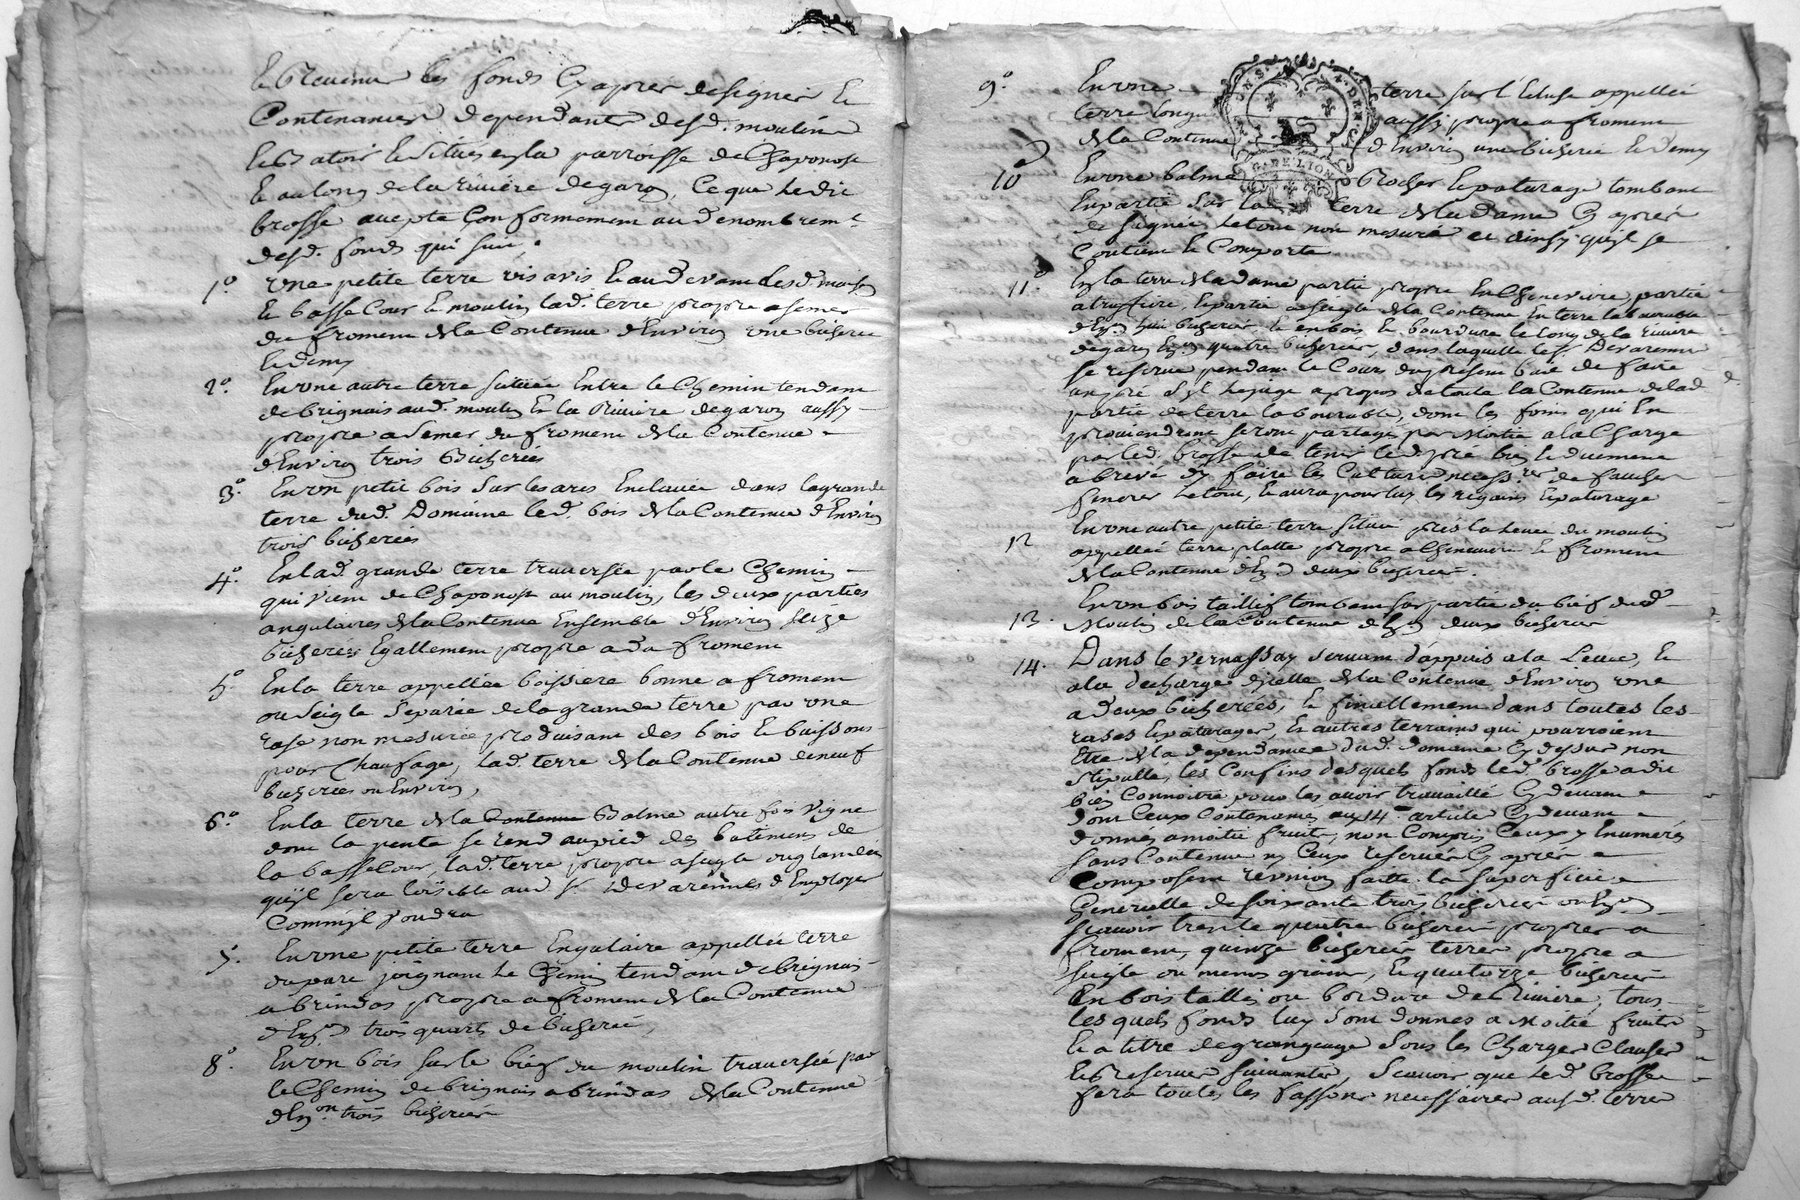 les fonds Cy apres designer Et
Contenances dependants desd. moulins
Et Batoir Et Situés en la parroisse de Chaponost
Et au long de la riviere de garon, Ce que led.
brosse accepte Conformement au denombremt.
desd. fonds qui suit.
1° une petite terre vis avis Et au devant desd. maison
Et basse Cour Et moulin lad. terre propre a semer
du froment de la Contenue d'Environ une bicherée
Et demy
2° En une autre terre située Entre le Chemin tendant
de brignais aud. moulin Et la Riviere de garon aussy
propre a semer du froment de la Contenue
d'Environ trois Bicherées
3° En un petit bois sur Enclavée dans la grande
terre dud. Domaine led. bois de la Contenue d'Environ
trois bicherées
4° En lad. grande terre traversée par le Chemin
qui vient de Chaponost au moulin, les deux parties
angulaires de la Contenue Ensemble d'Environ seize
bicherées Egallement propre a froment
5° En la terre appellée boissiere bonne a froment
ou seigle Separée de la grande terre par une
rase non mesurée produisant des bois Et buissons
pour Chaufage, lad. terre de la Contenue de neuf
bicherées ou Environ,
6° En la terre de la Balme autre fois vigne
dont la pente se rend au pied des batimens de
la basse Cour, lad. terre propre a seigle
qu'il sera loisible aud. sr. devarennes d'Employer
Comm'il voudra
7. En une petite terre Engulaire appellée terre
du parc joignant Le Chemin tendant de brignais
a brindas propre a froment de la Contenue
d'Eron trois quarts de bicherée,
8° En un bois sur le bief du moulin traversée par
le Chemin de brignais a brindas de la Contenue
d'Eron trois bicherées
9° En une terre sur l'Ecluse appellée
terre longue aussy propre a froment
de la Contenue d'Environ une bicherée Et Demy
10° En une balme Rocher Et paturage tombant
En partie Sur la terre de la dame Cy après
designée, Le tout non mesuré et ainsy qu'il se
Contient Et Comporte
11. En la terre de la dame partie propre En Cheneviere partie
Et partie a seigle de la Contenue En terre labourable
d'Eron huit bicherées Et en bois Et bordure le long de la riviere
de garon Eron quatre bicherées, dans laquelle led. sr. Devarenne
se reserve pendant le Cours du present bail de faire
un pré s'il le juge a propos de toute la Contenue de lad.
partie de terre labourable, dont les foins qui En
proviendront seront partagé par Moitié a la Charge
par led. brosse de tenir led. pré bien Et duement
abrevé d'y faire les Cultures necessres. de faucher
fenerer Le tout, Et aura pour luy les regains Et paturage
12 En une autre petite terre située près la Levée du moulin
appellée terre platte propre a Cheneviere Et froment
de la Contenue d'Eron deux bicherées.
13. En un bois taillis tombant sur partie du bief dud.
Moulin de la Contenue d'Eron deux bicherées
14. Dans le vernassay servant d'appuis a la Levée, Et
a la decharge d'icelle de la Contenue d'Environ une
a deux bicherées, Et finallement dans toutes les
rases Et paturages, Et autres terrains qui pourroient
Etre de la dependance dud. domaine Cy dessus non
stipullé, les Confins desquels fonds led. brosse a dit
bien Connoitre pour les avoir travaillé Cy devant
dont Ceux Contenances au 14e. article Cy devant
donnés a moitié fruits, non Compris Ceux y Enumerés
sans Contenue ny Ceux reservés Cy après
Composent reunion faitte la superficie
Generalle de soixante trois bicherées ou Eron
scavoir trente quatre bicherées propres a
froment, quinze bicherées terres propre a
seigle ou menus grains, Et quatorze bicherées
En bois taillis ou bordure de Riviere, tous
lesquels fonds luy sont donnés a Moitié fruits
Et a titre de grangeage Sous les Charges Clauses
Et Reserves suivantes, Scavoir que led. brosse
fera toutes les fassons necessaires ausd. terres
GEN. LION